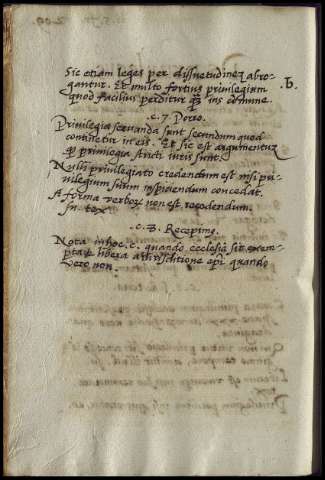 Sic etiam leges per dissuetudinez abro-
gantur. Et multo fortius privilegium .b.
quod facilius perditur qz ius comune.
.c. 7 Porro.
Privilegia servanda sunt secundum quod
continetur in eis. Et sic est argumentuz
qz privilegia stricti iuris sunt.
Nulli privilegiato credendum est nisi pri-
vilegium suum inspiciendum concedat.
A forma verboz non est recedendum.
in tex
.c. 8. Recepimg.
Nota in hoc .c. quando ecclesia sit exem-
pta et libera a iurisditione epi quando
vero non.